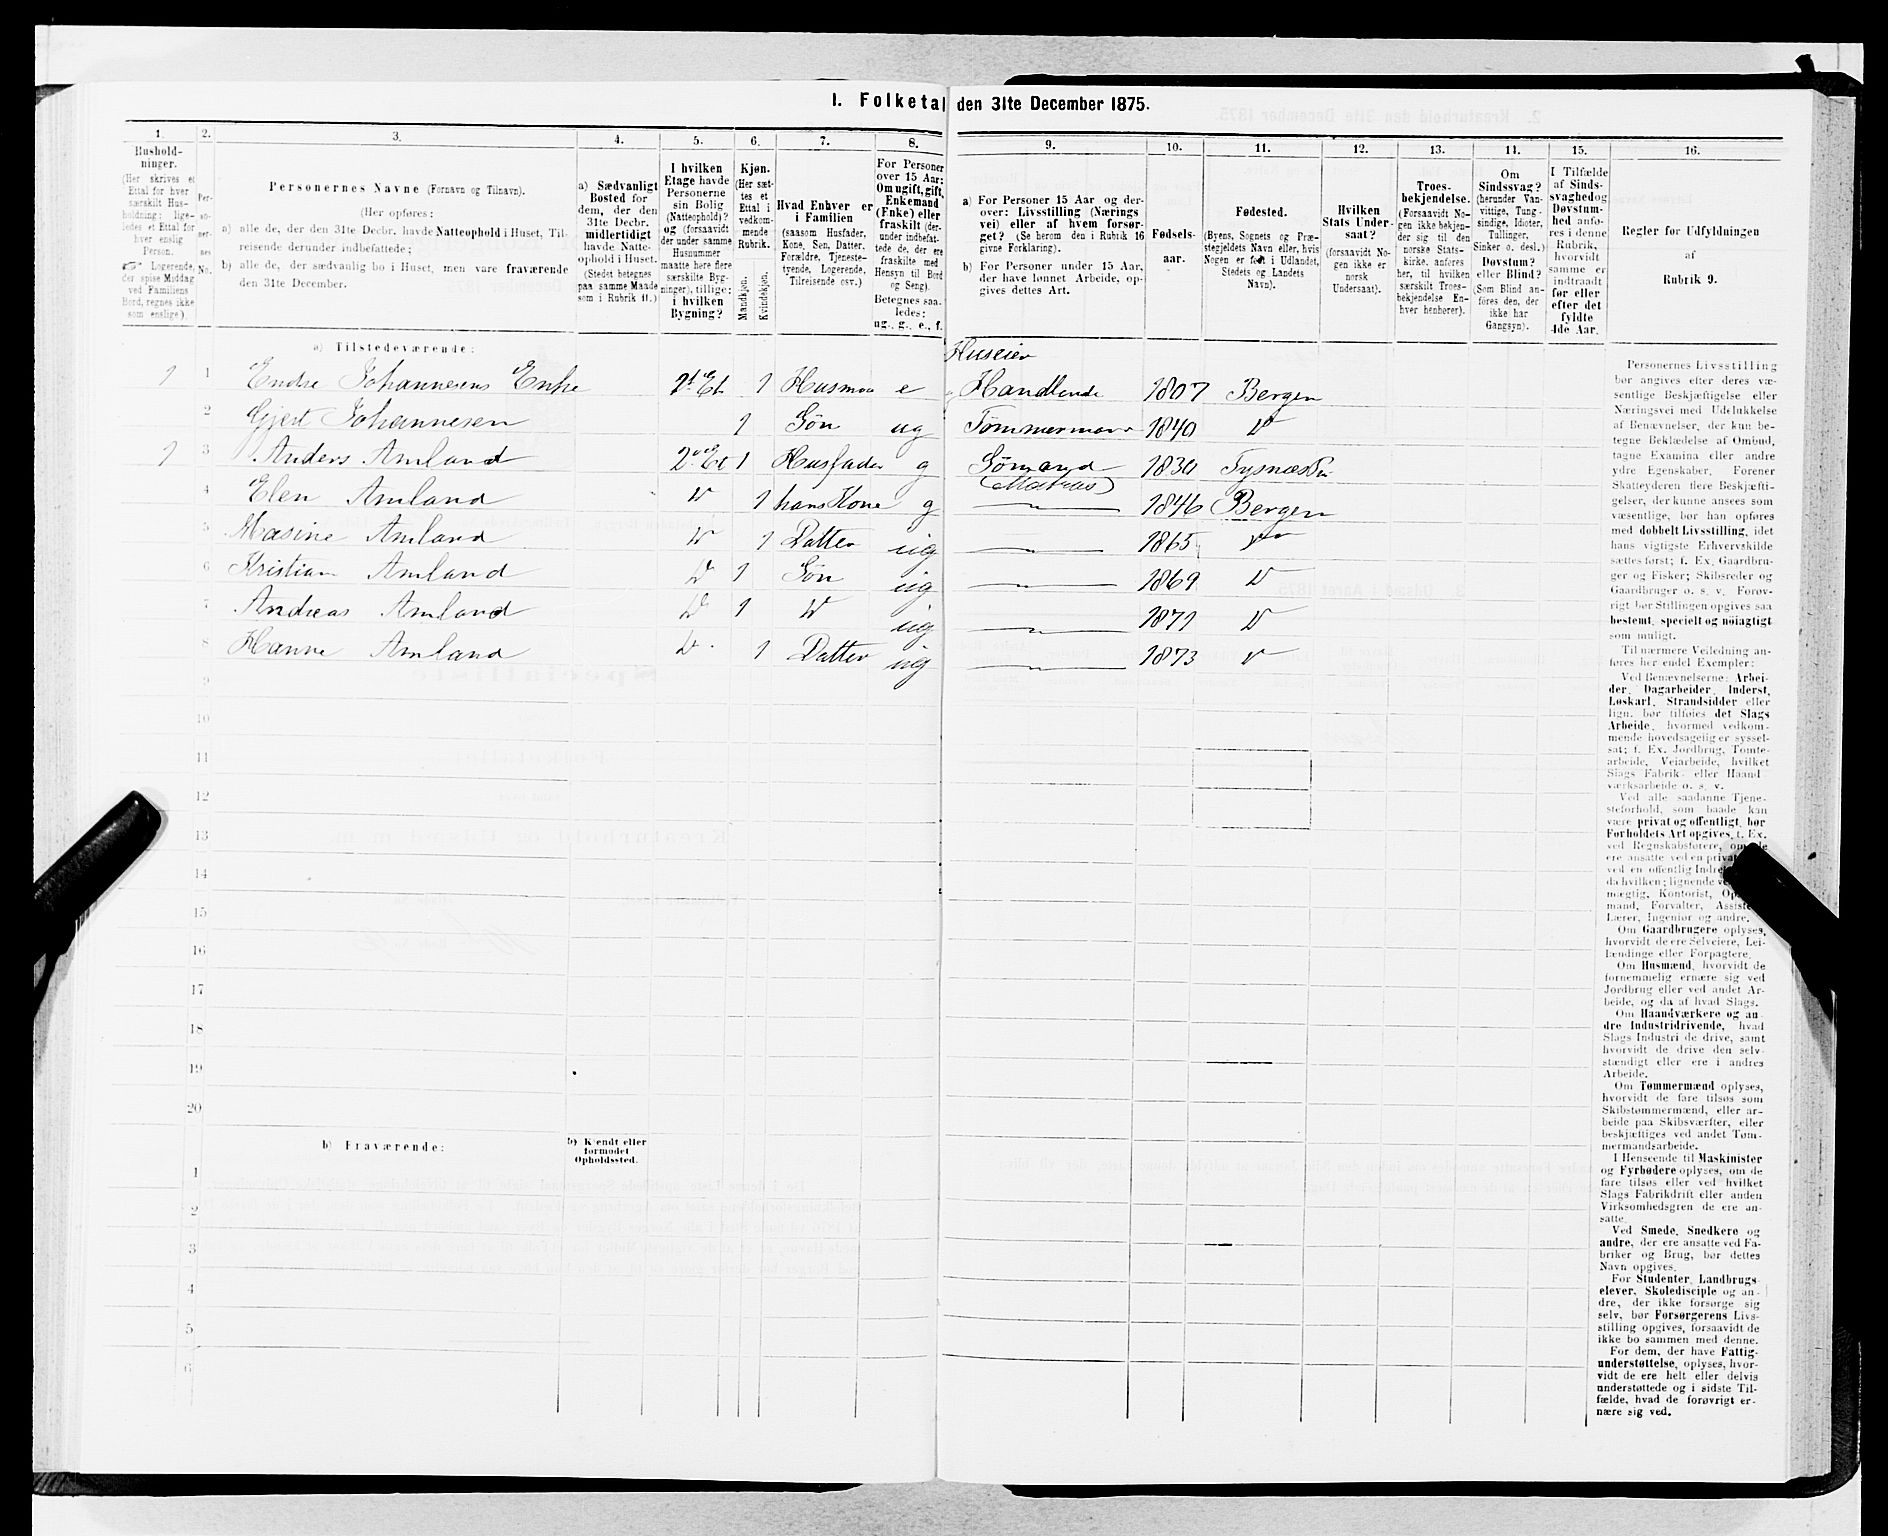 1. Folketal den 31te December 1875.
1.
Hushold-
ninger.
(Her skrives et
Ettal for hver
særskilt Hus-
holdning; lige-
ledes et Ettal for
hver enslig
Person.
☞ Logerende,
der spise Middag
ved Familiens
Bord, regnes ikke
som enslige).
2.
Per-
so-
ner-
nes
No.
3.
Personernes Navne (Fornavn og Tilnavn).
(Her opføres:
a) alle de, der den 31te Decbr. havde Natteophold i Huset, Til-
reisende derunder indbefattede;
b) alle de, der sædvanlig bo i Huset, men vare fraværende
den 31te December.
4.
a) Sædvanligt
Bosted for
dem, der den
31te Decbr.
midlertidigt
havde Natte-
ophold i Huset.
(Stedet betegnes
paa samme Maade
som i Rubrik 11.)
5.
I hvilken
Etage havde
Personerne
sin Bolig
(Natteophold)?
og (forsaavidt
der under samme
Husnummer
maatte høre flere
særskilte Byg-
ninger), tillige:
i hvilken
Bygning?
6.
Kjøn.
(Her sæt-
tes et
Ettal i
vedkom-
mende
Rubrik.
Mandkjøn.
Kvindekjøn.
7.
Hvad Enhver er
i Familien
(saasom Husfader,
Kone, Søn, Datter,
Forældre, Tjeneste-
tyende, Logerende,
Tilreisende osv.)
8.
For Personer
over 15 Aar:
Om ugift, gift,
Enkemand
(Enke) eller
fraskilt (der-
under indbefat-
tede de, der ere
fraskilte med
Hensyn til Bord
og Seng).
Betegnes saa-
ledes:
ug., g., e., f.
9.
a) For Personer 15 Aar og der-
over: Livsstilling (Nærings
vei) eller af hvem forsør-
get? (Se herom den i Rubrik 16
givne Forklaring).
b) For Personer under 15 Aar,
der have lønnet Arbeide, op-
gives dettes Art.
10.
Fødsels-
aar.
11.
Fødested.
(Byens, Sognets og Præ-
stegjeldets Navn eller, hvis
Nogen er født i Udlandet,
Stedets og Landets
Navn).
12.
Hvilken
Stats Under-
saat?
(forsaavidt No-
gen ikke er
norsk
Undersaat).
13.
Troes-
bekjendelse.
(Forsaavidt No-
gen ikke bekjen-
der sig til den
norske Stats-
kirke, anføres
her, til hvilken
særskilt Troes-
bekjendelse En-
hver henhører).
14.
Om
Sindssvag?
(herunder Van-
vittige, Tung-
sindige, Idioter,
Tullinger,
Sinker o. desl.)
Døvstum?
eller Blind?
(Som Blind an-
føres den, der
ikke har
Gangsyn).
15.
I Tilfælde
af Sinds-
svaghed og
Døvstum-
hed anfø-
res i denne
Rubrik,
hvorvidt
samme er
indtraadt
før eller
efter det
fyldte
4de Aar.
16.
Regler for Udfyldningen
af
Rubrik 9.
a) Tilstedeværende:
Huseier
1 1 Endre Johannesens Enke 2d Et. 1 Husmor e Handlende 1807 Bergen
2 Gjert Johannesen 1 Søn ug Tømmermand 1840 D
1 3 Anders Amland 2. Et 1 Husfader g Sømand 1830 Tysnæs
(Matros)
4 Elen Amland D 1 hans Kone g 1846 Bergen
5 Masine Amland D 1 Datter ug 1865 D
6 Kristian Amland D 1 Søn ug 1869 D
7 Andreas Amland D 1 D ug 1871 D
8 Hanne Amland D 1 Datter ug 1873 D
9
10
11
12
13
14
15
16
17
18
19
20
b) Fraværende:
b) Kjendt eller
formodet
Opholdssted.
1
2
3
4
5
6
Personernes Livsstilling
bør angives efter deres væ-
sentlige Beskjæftigelse eller
Næringsvei med Udelukkelse
af Benævnelser, der kun be-
tegne Beklædelse af Ombud,
tagne Examina eller andre
ydre Egenskaber. Forener
Skatteyderen flere Beskjæfti-
gelser, der kunne ansees som
væsentlige, bør han opføres
med dobbelt Livsstilling, idet
hans vigtigste Erhvervskilde
sættes først; f. Ex. Gaardbru-
ger og Fisker; Skibsreder og
Gaardbruger o. s. v. Forøv-
rigt bør Stillingen opgives saa
bestemt, specielt og nøiagtigt
som muligt.
Til nærmere Veiledning an-
føres her endel Exempler:
Ved Benævnelserne: Arbei-
der, Dagarbeider, Inderst,
Løskarl, Strandsidder eller
lign. bør tilføies det Slags
Arbeide, hvormed vedkom-
mende hovedsagelig er syssel-
sat; f. Ex. Jordbrug, Tomte-
arbeide, Veiarbeide, hvilket
Slags Fabrik- eller Haand
værksarbeide o. s. v.
Ved alle saadanne Tjene-
steforhold, som baade kan
være privat og offentligt, bør
Forholdets Art opgives, t. Ex.
ved Regnskabsførere, om de
ere ansatte ved en privat
ved en offentlig
da hvilken; lignende
mægtig, Kontorist,
mand, Forvalter,
Lærer, Ingeniør og andre.
Om Gaardbrugere oplyses,
hvorvidt de ere Selveiere, Lei-
lændinge eller Forpagtere.
Om Husmænd, hvorvidt de
fornemmelig ernære sig ved
Jordbrug eller ved andet Ar-
beide, og da af hvad Slags.
Om Haandværkere og an-
dre Industridrivende, hvad
Slags Industri de drive, samt
hvorvidt de drive den selv-
stændigt eller ere i andres
Arbeide.
Om Tømmermænd oplyses,
hvorvidt de fare tilsøs som
Skibstømmermænd, eller ar-
beide paa Skibsværfter, eller
beskjæftiges ved andet Tøm-
mermandsarbeide.
I Henseende til Maskinister
og Fyrbødere oplyses, om de
fare tilsøs eller ved hvilket
Slags Fabrikdrift eller anden
Virksomhedsgren de ere an-
satte.
Ved Smede, Snedkere og
andre, der ere ansatte ved Fa-
briker og Brug, bør dettes
Navn opgives.
For Studenter, Landbrugs-
elever, Skoledisciple og an-
dre, der ikke forsørge sig
selv, bør Forsørgerens Livs-
stilling opgives, forsaavidt de
ikke bo sammen med denne.
For dem, der have Fattig-
understøttelse, oplyses, hvor-
vidt de ere helt eller delvis
understøttede og i sidste Til-
fælde, hvad de forøvrigt er-
nære sig ved.